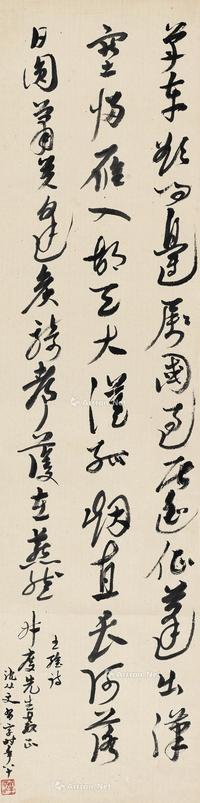 單車欲問邊屬國過居延征蓬出漢
塞歸雁入胡天大漠孤烟直長河落
日圓蕭關逢候騎都護在燕然
王維詩
度先生教正
沈从文書時年八十